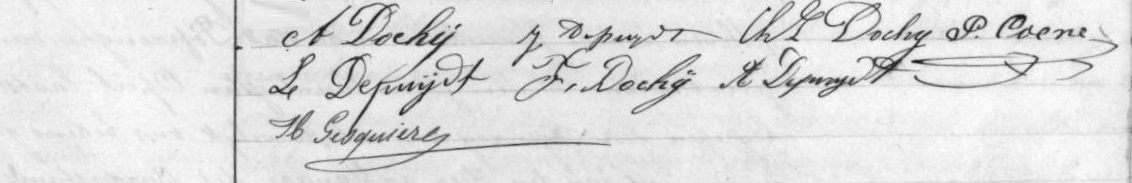 A Dochÿ J Depuydt Ch L Dochy P. Coene
L Depuydt F. Dochÿ A Depuydt
H Gesquiere